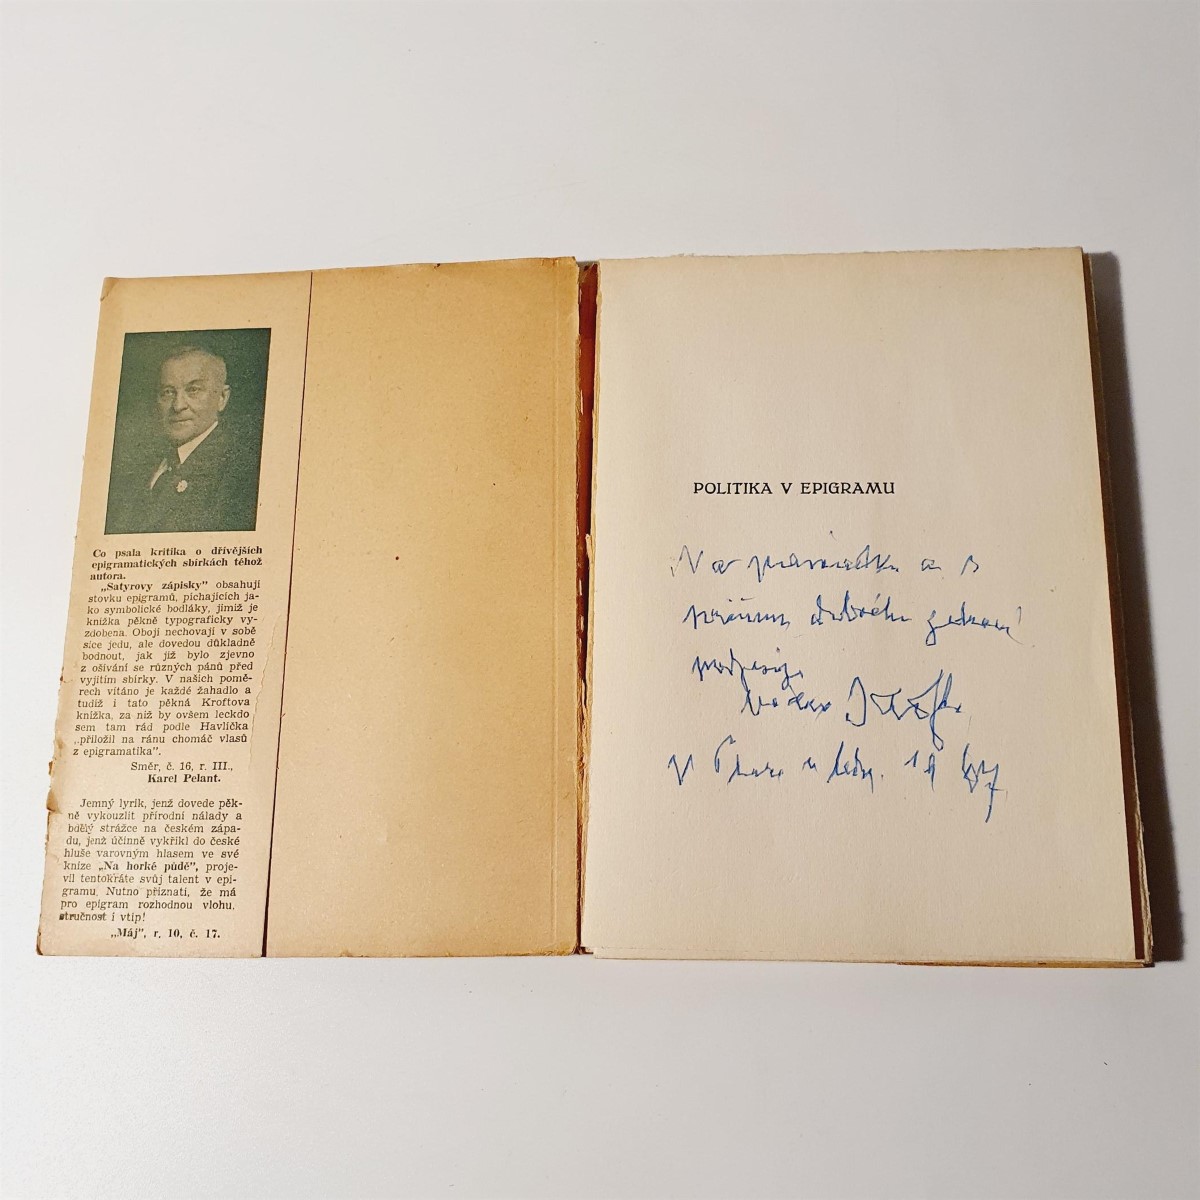 Co psala kritika o dřívějších
epigramatických sbírkách téhož
autora.
„Satyrovy zápisky" obsahují
stovku epigramů, píchajících ja-
ko symbolické bodláky, jimiž je
knížka pěkně typograficky vy-
zdobena. Obojí nechovají v sobě
sice jedu, ale dovedou důkladně
bodnout, jak již bylo zjevno
z ošívání se různých pánů před
vyjitím sbírky. V našich pomě-
rech vítáno je každé žahadlo a
tudíž i tato pěkná Kroftova
knížka, za niž by ovšem leckdo
sem tam rád podle Havlíčka
„přiložil na ránu chomáč vlasů
z epigramatika".
Směr, č. 16, r. III.,
Karel Pelant.
Jemný lyrik, jenž dovede pěk-
ně vykouzlit přírodní nálady a
bdělý strážce na českém zápa-
du, jenž účinně vykřikl do české
hluše varovným hlasem ve své
knize „Na horké půdě", proje-
vil tentokráte svůj talent v epi-
gramu. Nutno přiznati, že má
pro epigram rozhodnou vlohu,
stručnost i vtip!
„Máj", r. 10, č. 17.
POLITIKA V EPIGRAMU
Na památku a s
dobrého
V 19